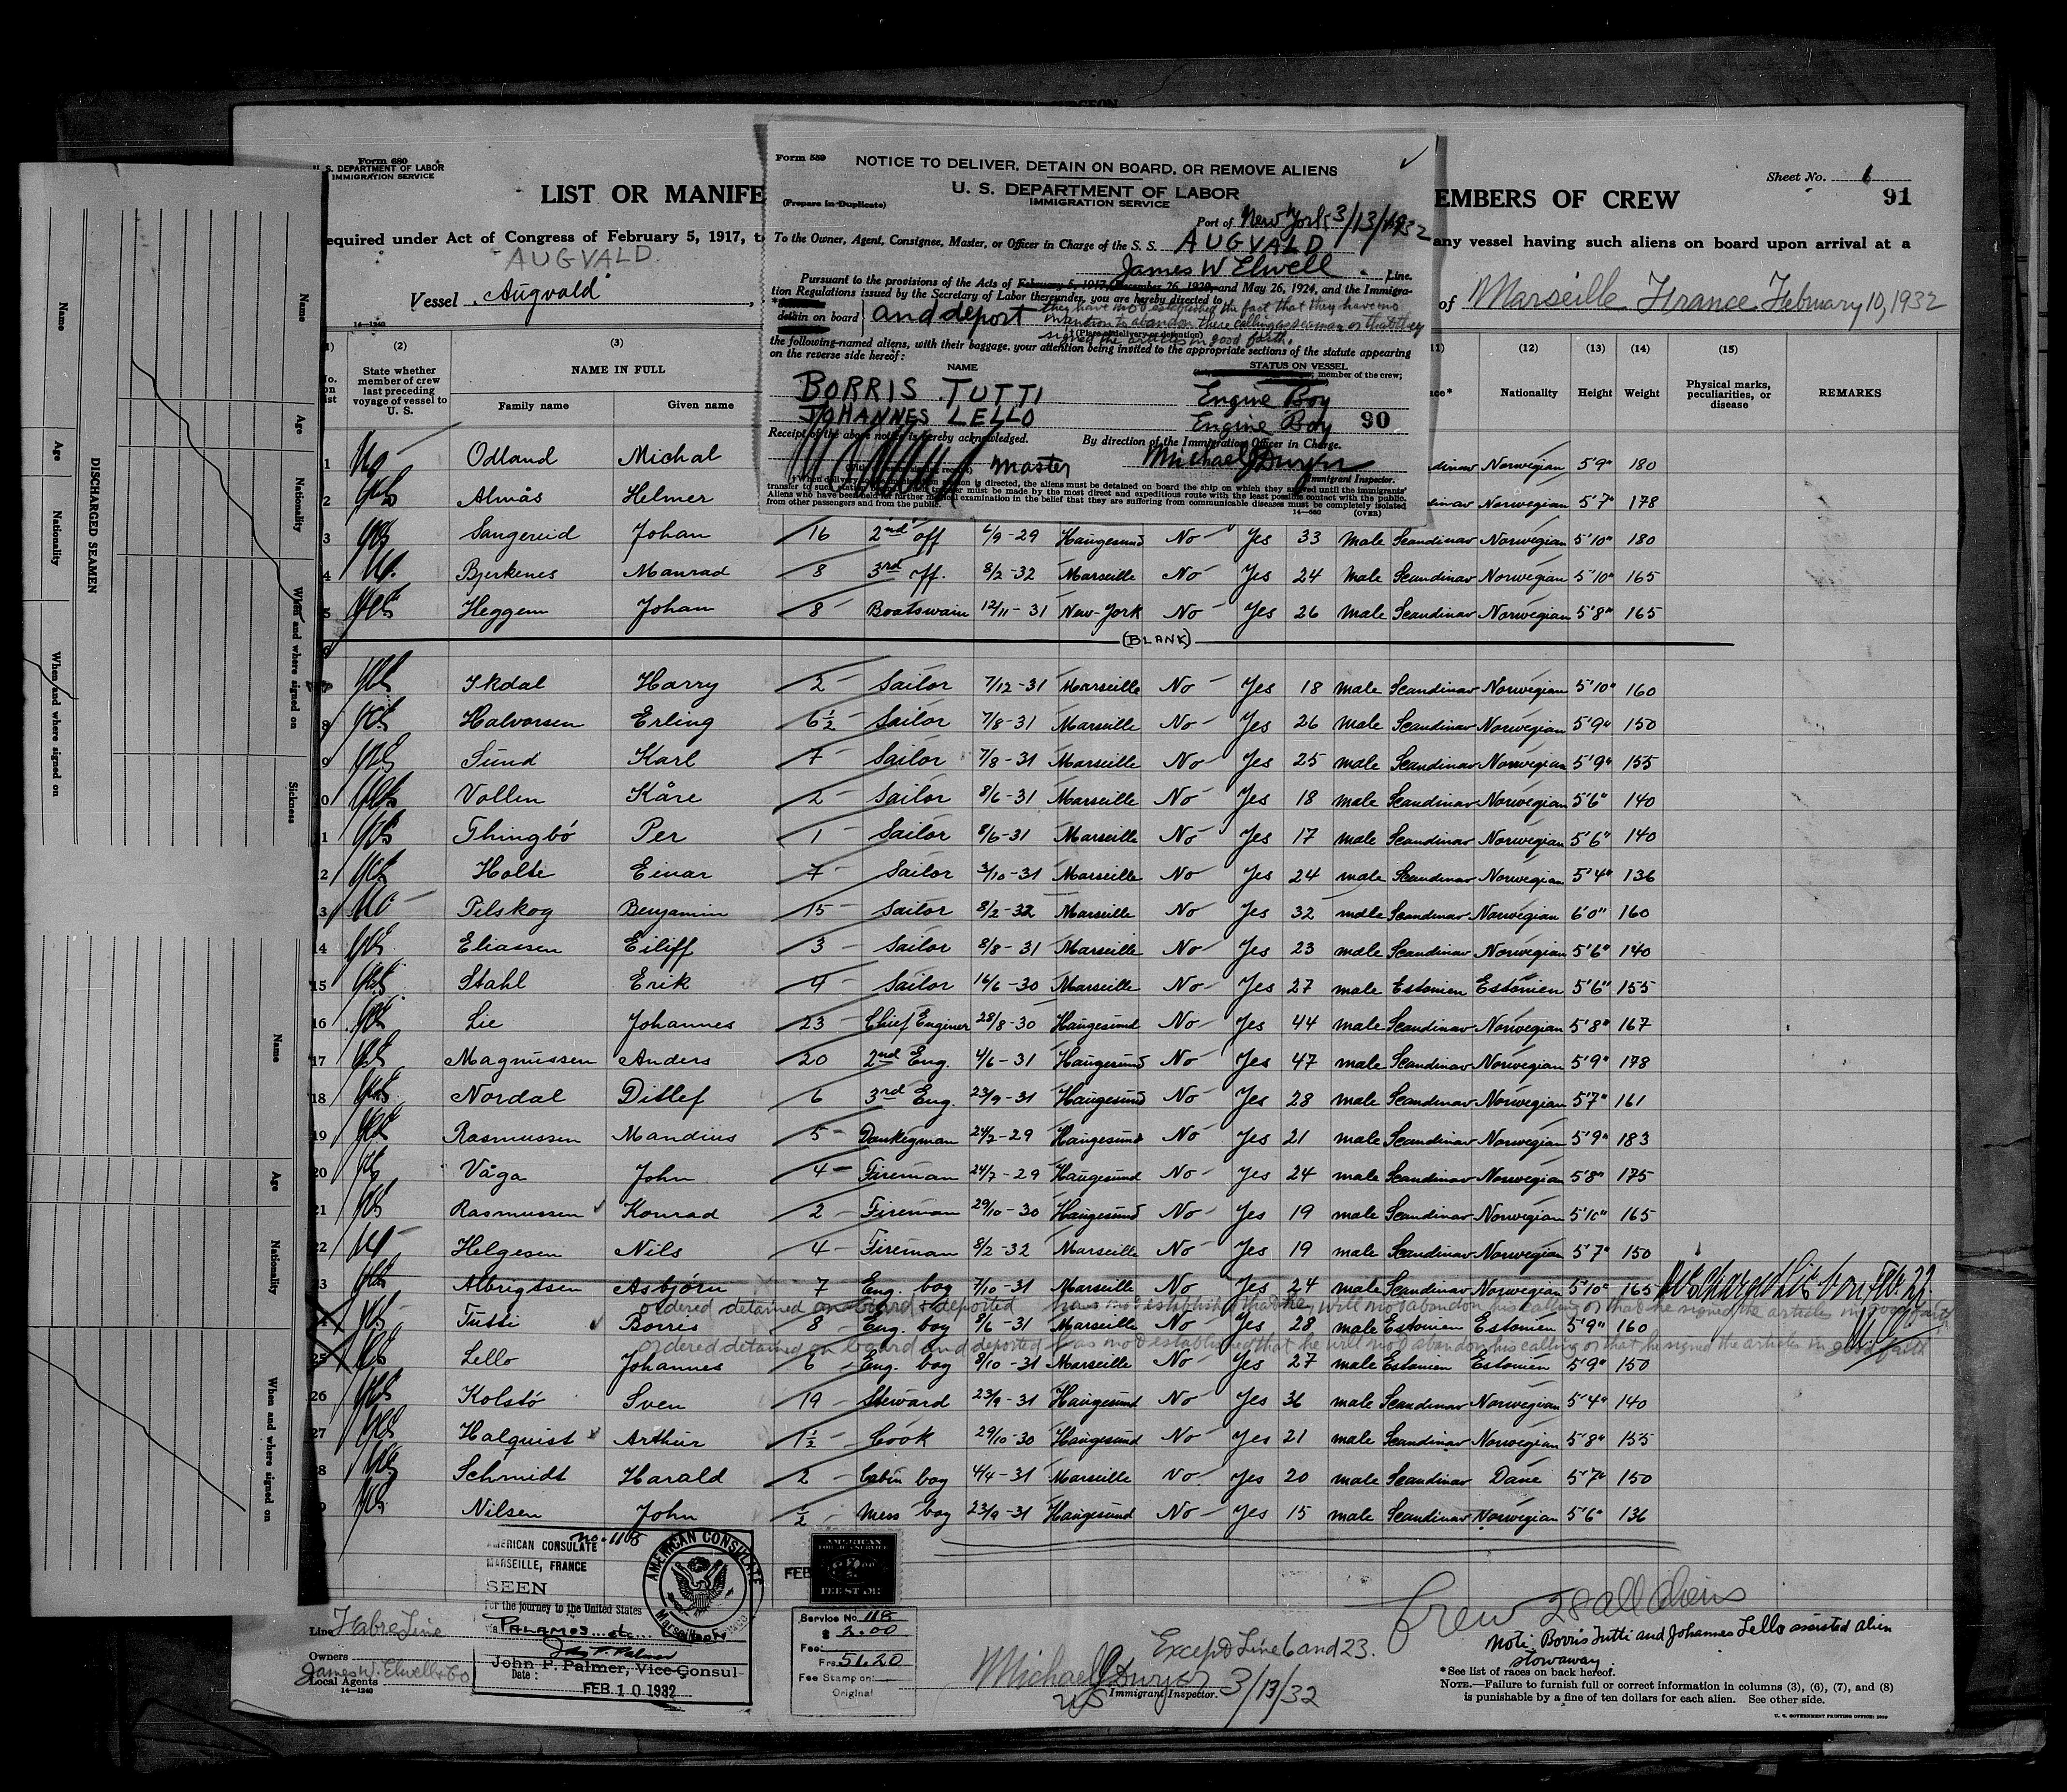 Form 680
U. S. DEPARTMENT OF LABOR
IMMIGRATION SERVICE
LIST OR MANIFE
EMBERS OF CREW
Sheet No. 1
91
equired under Act of Congress of February 5, 1917, t
any vessel having such aliens on board upon arrival at a
AUGVALD
Vessel Augvald
of Marseille France February 10, 1932
14-1240
Form 559
NOTICE TO DELIVER, DETAIN ON BOARD, OR REMOVE ALIENS
U. S. DEPARTMENT OF LABOR
IMMIGRATION SERVICE
(Prepare in Duplicate)
Port of New York 3/13/1932
To the Owner, Agent, Consignee, Master, or Officer in Charge of the S. S. AUGVALD
James W Elwell Line.
Pursuant to the provisions of the Acts of February 5, 1917, December 26, 1920, and May 26, 1924, and the Immigra-
tion Regulations issued by the Secretary of Labor thereunder, you are hereby directed to
detain on board and deport they have not established the fact that they have no
intention to abandon there calling as seaman or that they
signed the articles in good faith.
(Place of delivery or detention)
the following-named aliens, with their baggage, your attention being invited to the appropriate sections of the statute appearing
on the reverse side hereof:
NAME
STATUS ON VESSEL
member of the crew;
BORRIS TUTTI Engine Boy
JOHANNES LELLO Engine Boy 90
Receipt of the above notice is hereby acknowledged.
By direction of the Immigration Officer in Charge.
Master
Michael J Dwyer
Immigrant Inspector.
† When delivery
transfer to such
Aliens who have been held for further medical examination in the belief that they are suffering from communicable diseases must be completely isolated
from other passengers and from the public.
14-560 (OVER)
(2) (3) (11) (12) (13) (14) (15)
State whether member of crew last preceding voyage of vessel to U. S.
NAME IN FULL
Family name Given name
Nationality Height Weight Physical marks, peculiarities, or disease REMARKS
1 No Odland Michal Norwegian 5'9" 180
2 Yes Almås Helmer Norwegian 5'7" 178
3 Yes Sangereid Johan 16 2nd off 6/9-29 Haugesund No Yes 33 Male Scandinav Norwegian 5'10" 180
4 No. Bjerkenes Manrad 8 3rd off. 8/2-32 Marseille No Yes 24 Male Scandinav Norwegian 5'10" 165
5 Yes Heggem Johan 8 Boatswain 12/11-31 New-York No Yes 26 Male Scandinav Norwegian 5'8" 165
6 (BLANK)
7 Yes Ikdal Harry 2 Sailor 7/12-31 Marseille No Yes 18 male Scandinav Norwegian 5'10" 160
8 Yes Halvorsen Erling 6½ Sailor 7/8-31 Marseille No Yes 26 Male Scandinav Norwegian 5'9" 150
9 Yes Sund Karl 7 Sailor 7/8-31 Marseille No Yes 25 male Scandinav Norwegian 5'9" 155
10 Yes Vollen Kåre 2 Sailor 8/6-31 Marseille No Yes 18 male Scandinav Norwegian 5'6" 140
11 Yes Thingbó Per 1 Sailor 8/6-31 Marseille No Yes 17 male Scandinav Norwegian 5'6" 140
12 Yes Holte Einar 7 Sailor 3/10-31 Marseille No Yes 24 male Scandinav Norwegian 5'4" 136
13 No Pilskog Benjamin 15 Sailor 8/2-32 Marseille No Yes 32 male Scandinav Norwegian 6'0" 160
14 Yes Eliassen Eiliff 3 Sailor 8/8-31 Marseille No Yes 23 male Scandinav Norwegian 5'6" 140
15 Yes Stahl Erik 4 Sailor 16/6-30 Marseille No Yes 27 male Estonien Estonien 5'6" 155
16 Yes Lie Johannes 23 Chief Enginer 28/8-30 Haugesund No Yes 44 male Scandinav Norwegian 5'8" 167
17 Yes Magnussen Anders 20 2nd Eng. 4/6-31 Haugesund No Yes 47 male Scandinav Norwegian 5'9" 178
18 Yes Nordal Ditlef 6 3rd Eng. 23/9-31 Haugesund No Yes 28 male Scandinav Norwegian 5'7" 161
19 Yes Rasmussen Mandius 5 Donkeyman 24/7-29 Haugesund No Yes 21 male Scandinav Norwegian 5'9" 183
20 Yes Våga John 4 Fireman 24/7-29 Haugesund No Yes 24 male Scandinav Norwegian 5'8" 175
21 Yes Rasmussen Konrad 2 Fireman 29/10-30 Haugesund No Yes 19 male Scandinav Norwegian 5'10" 165
22 No Helgesen Nils 4 Fireman 8/2-32 Marseille No Yes 19 male Scandinav Norwegian 5'7" 150
23 Yes Albrigtsen Asbjørn 7 Eng. boy 7/10-31 Marseille No Yes 24 male Scandinav Norwegian 5'10" 165 Discharged Lisbon Feb. 22.
ordered detained on board & deported has not established that they will not abandon his calling or that he signed the articles in good faith
24 Yes Tutti Borris 8 Eng. boy 8/6-31 Marseille No Yes 28 male Estonien Estonien 5'9" 160
ordered detained on board and deported has not established that he will not abandon his calling or that he signed the articles in good faith
25 Yes Lello Johannes 6 Eng. boy 8/10-31 Marseille No Yes 27 male Estonien Estonien 5'9" 150
26 Yes Kolstó Sven 19 Steward 23/9-31 Haugesund No Yes 36 male Scandinav Norwegian 5'4" 140
27 Yes Halquist Arthur 1½ Cook 29/10-30 Haugesund No Yes 21 male Scandinav Norwegian 5'8" 155
28 Yes Schmidt Harald 2 Cabin boy 4/4-31 Marseille No Yes 20 male Scandinav Dane 5'7" 150
29 Yes Nilsen John ½ Mess boy 23/9-31 Haugesund No Yes 15 male Scandinav Norwegian 5'6" 136
No. 1188
AMERICAN CONSULATE
MARSEILLE, FRANCE
SEEN
For the journey to the United States
via PALAMOS etc.
John P. Palmer
John P. Palmer, Vice-Consul
Date: FEB 10 1932
AMERICAN CONSULATE
Marseille, France
FEB
AMERICAN
FEE STAMP
Service No. 118
$ 2.00
Fee:
Frs 51.20
Fee Stamp on:
Original
Line Fabre Line
Owners
James W. Elwell & Co
Local Agents
14-1240
Crew 28 all aliens
Except Line 6 and 23.
Michael J Dwyer 3/13/32
US Immigrant Inspector.
Note Borris Tutti and Johannes Lello assisted alien
stowaway.
*See list of races on back hereof.
NOTE.—Failure to furnish full or correct information in columns (3), (6), (7), and (8)
is punishable by a fine of ten dollars for each alien. See other side.
U. S. GOVERNMENT PRINTING OFFICE
DISCHARGED SEAMEN
Name
Age
Nationality
When and where signed on
Name
Age
Nationality
When and where signed on
Sickness
Name
Age
Nationality
When and where signed on